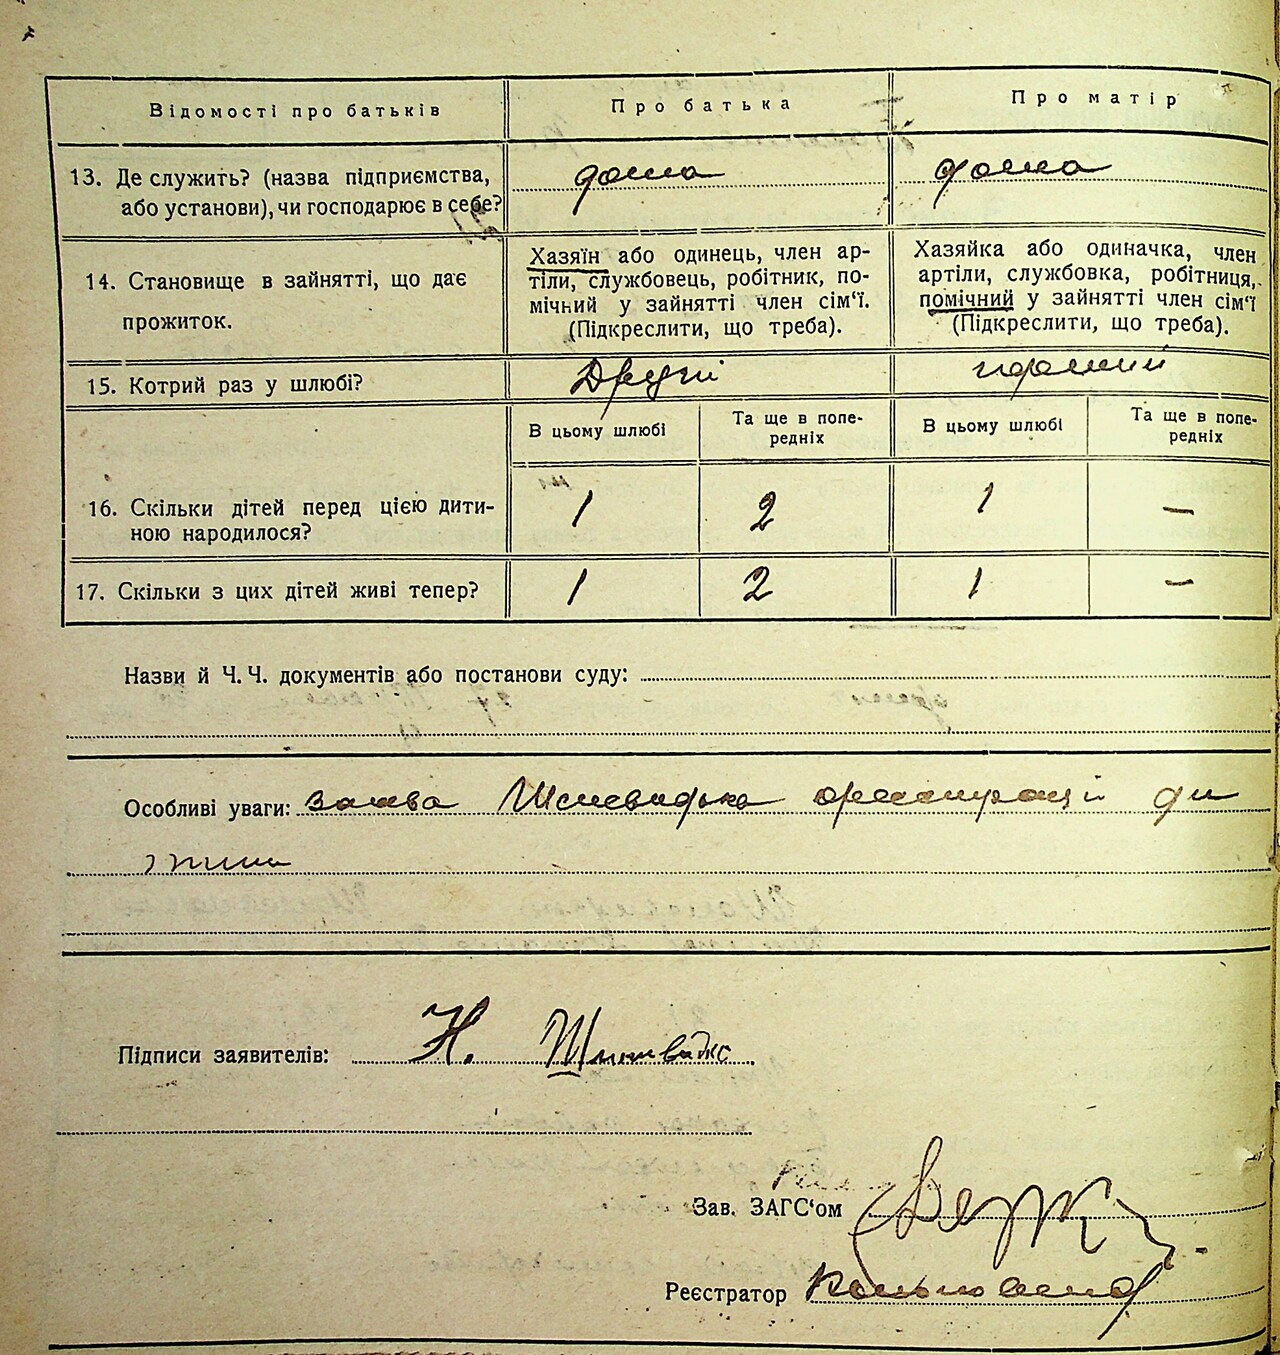 Відомості про батьків
Про батька
Про матір
13. Де служить? (назва підприємства,
або установи), чи господарює в себе?
дома
дома
14. Становище в зайнятті, що дає
прожиток.
Хазяїн або одинець, член ар-
тіли, службовець, робітник, по-
мічний у зайнятті член сім'ї.
(Підкреслити, що треба).
Хазяйка або одиначка, член
артіли, службовка, робітниця,
помічний у зайнятті член сім'ї
(Підкреслити, що треба).
15. Котрий раз у шлюбі?
Другі
В цьому шлюбі
Та ще в попе-
редніх
В цьому шлюбі
Та ще в попе-
редніх
16. Скільки дітей перед цією дити-
ною народилося?
1
2
1
—
17. Скільки з цих дітей живі тепер?
1
2
1
—
Назви й Ч. Ч. документів або постанови суду:
Особливі уваги: заява ди
тини
Підписи заявителів: Н.
Зав. ЗАГС'ом
Реєстратор